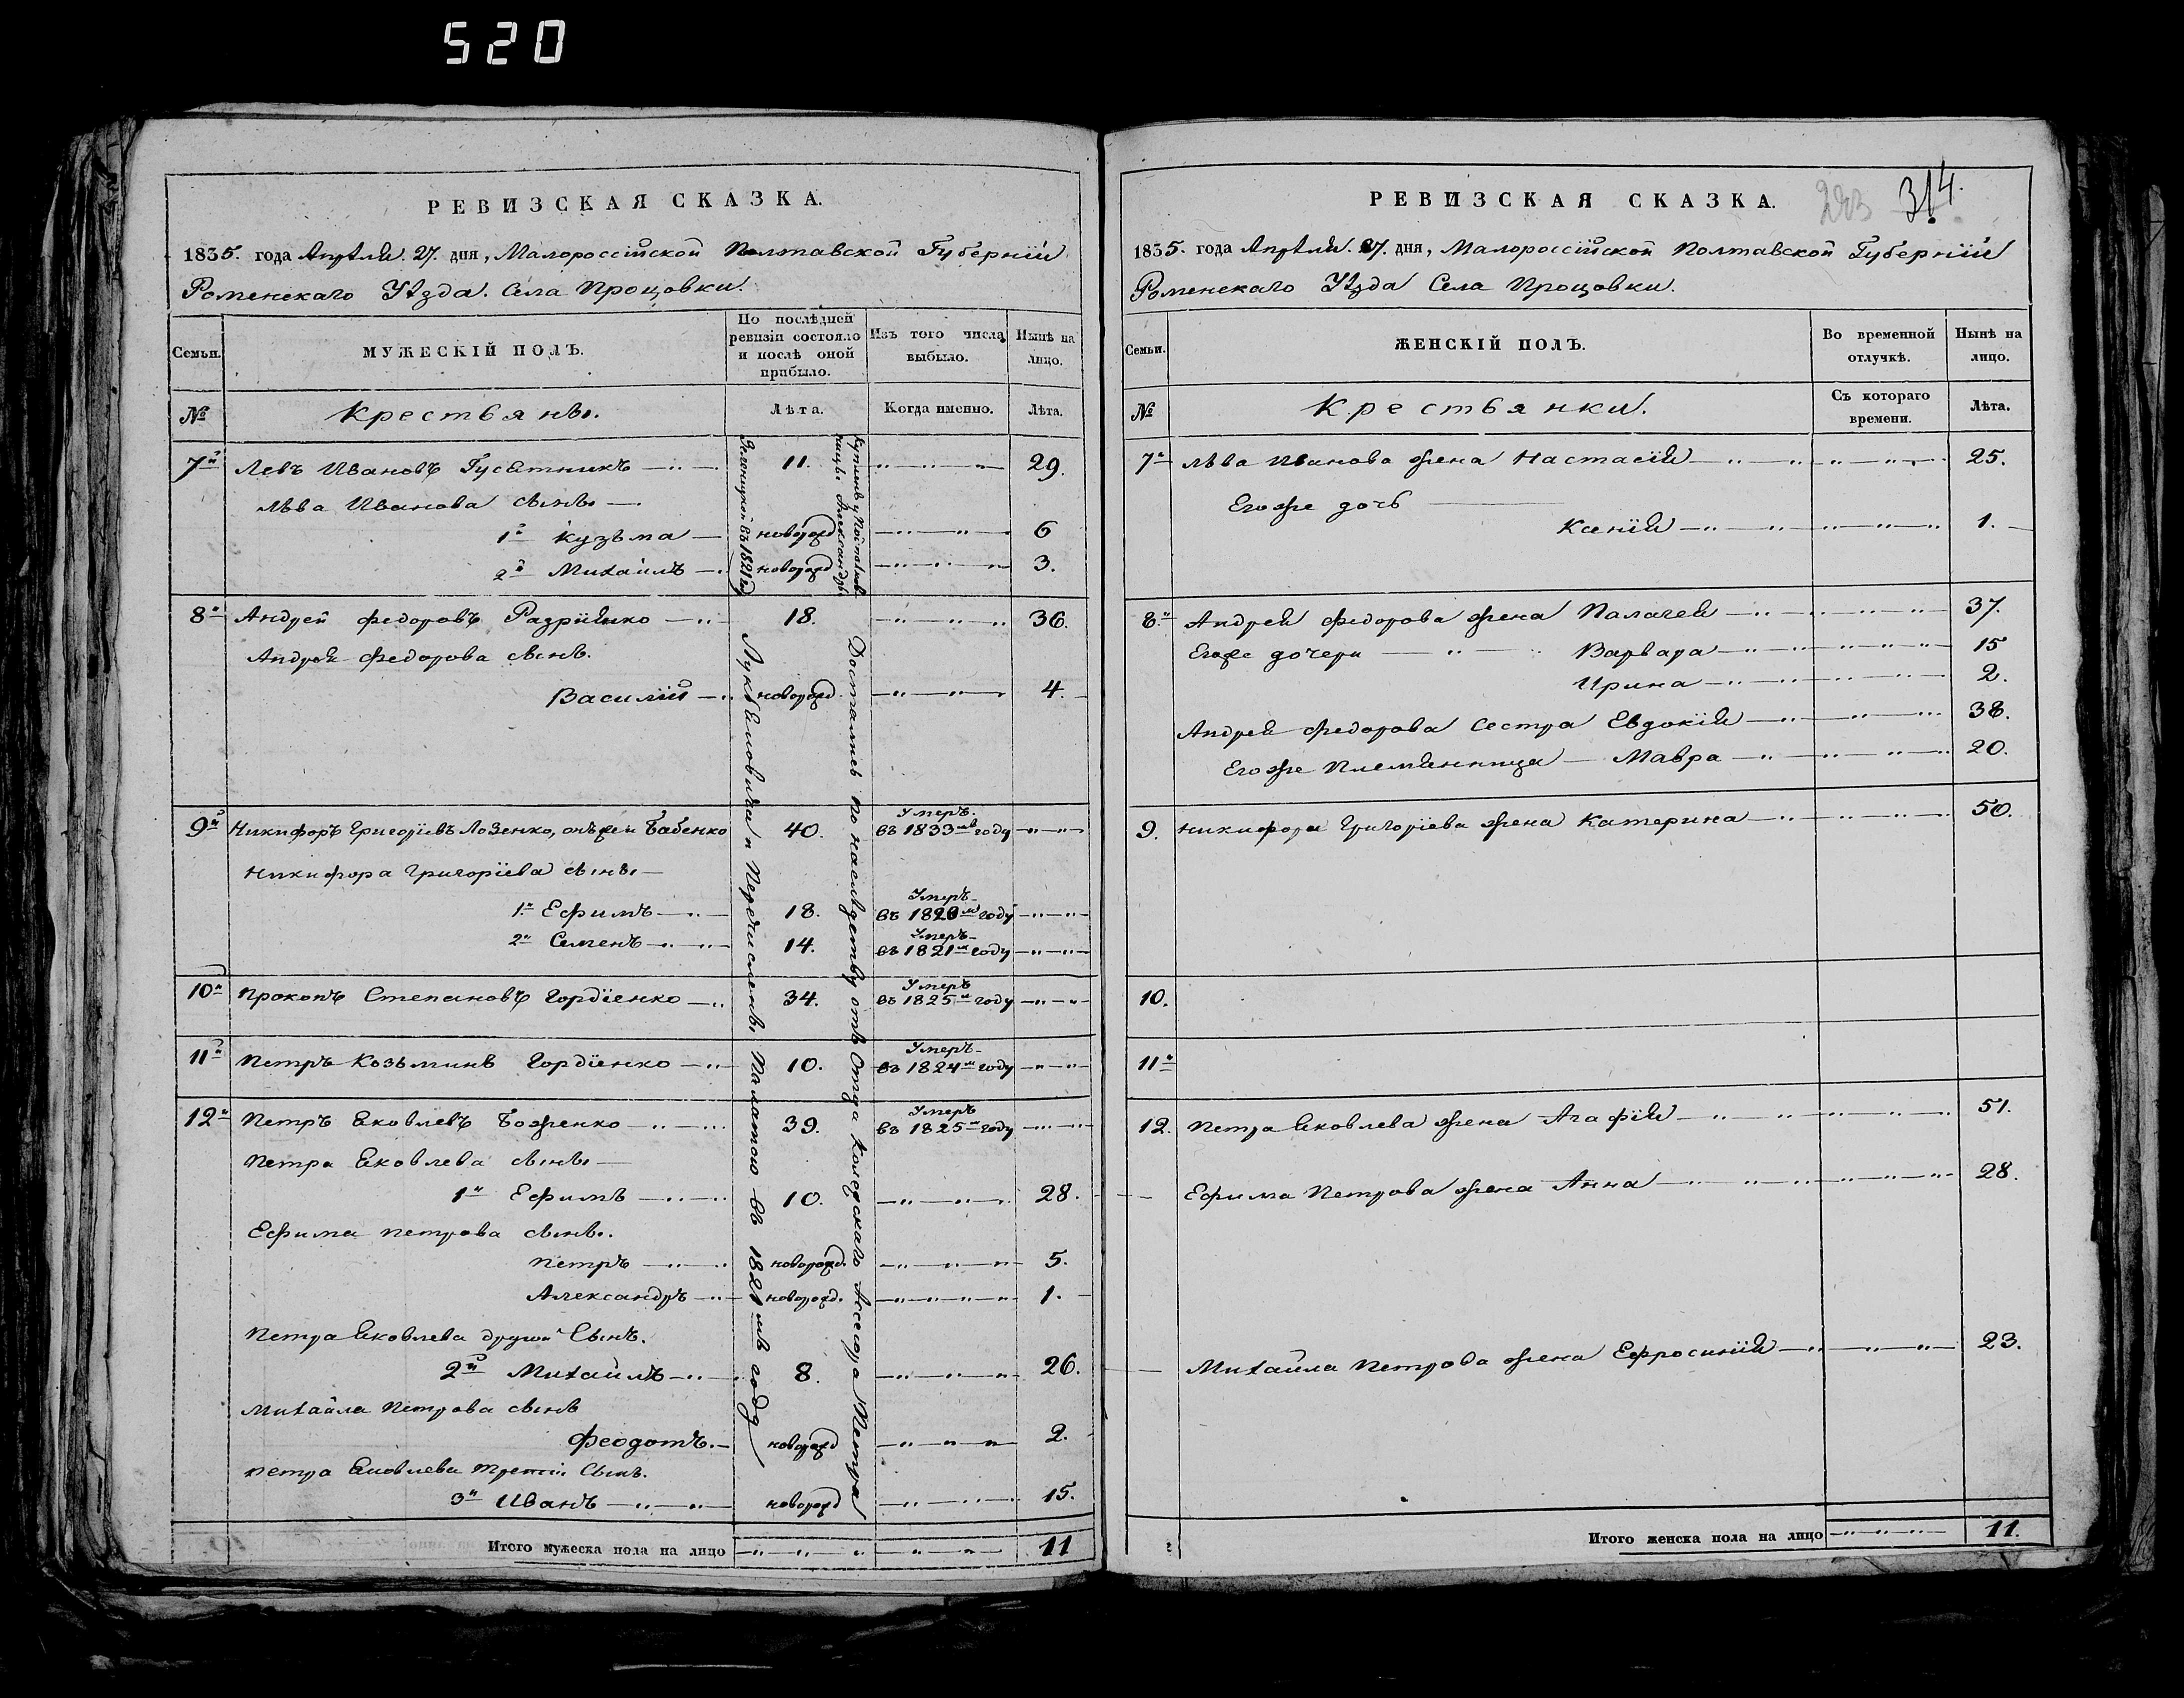 520
РЕВИЗСКАЯ СКАЗКА.
1835. года Апрѣля. 27. дня, Малороссійской Полтавской Губерніи
Роменскаго Уѣзда. Села Процовки.
Семьи.
МУЖЕСКІЙ ПОЛЪ.
По послѣдней ревизіи состояло и послѣ оной прибыло.
Изъ того числа выбыло.
Нынѣ на лицо.
№ Крестьянѣ. Лѣта. Когда именно. Лѣта.
7й Левъ Ивановъ Гусѣтникъ 11. 29.
Лѣва Иванова сынѣ
1й Кузьма новорожд 6
2й Михаилъ новорожд 3.
8й Андрей Федоровъ 18. 36.
Андрея Федорова сынъ.
Василій новорожд 4.
9й Никифоръ Григоріевъ Лозенко, онъ же и Бабенко 40. Умеръ. въ 1833мъ году
Никифора Григоріева сынѣ
1й Ефимъ 18. Умеръ въ 1820м году
2й Семенъ 14. Умеръ въ 1821м году
10й Прокопъ Степановъ Гордіенко 34. Умеръ въ 1825м году
11й Петръ Козьминъ Гордіенко 10. Умеръ въ 1824м году
12й Петръ Яковлевъ Боженко 39. Умеръ въ 1825м году
Петра Яковлева сынѣ
1й Ефимъ 10. 28.
Ефима Петрова сынѣ.
Петръ новорожд. 5.
Александръ новорожд. 1.
Петра Яковлева другій Сынъ.
2й Михаилъ 8. 26.
Михайла Петрова сынъ
Феодотъ. новорожд 2.
Петра Яковлева третій Сынъ.
3й Иванъ новорожд 15.
Итого мужеска пола на лицо 11
въ 1821 год
Александрѣ
Перечисленѣ Палатою въ 1821мъ году
Досталисъ по наслѣдству отъ Отца Колежскаго Ассесора Петра
РЕВИЗСКАЯ СКАЗКА.
314.
1835. года Апрѣля. 27. дня, Малороссійской Полтавской Губерніи
Роменскаго Уѣзда Села Процовки.
Семьи.
ЖЕНСКІЙ ПОЛЪ.
Во временной отлучкѣ.
Нынѣ на лицо.
№ Крестьянки. Съ котораго времени. Лѣта.
7я Лѣва Иванова жена Настасія 25.
Егоже дочь
Ксенія 1.
8я Андрея Федорова жена Палагея 37.
Егоже дочери Варвара 15
Ирина 2.
Андрея Федорова Сестра Евдокія 38.
Егоже Племянница Мавра 20.
9. Никифора Григоріева жена Катерина 50.
10.
11я
12. Петра Яковлева жена Агафія 51.
Ефима Петрова жена Анна 28.
Михайла Петрова жена Ефросинія 23.
Итого женска пола на лицо 11.